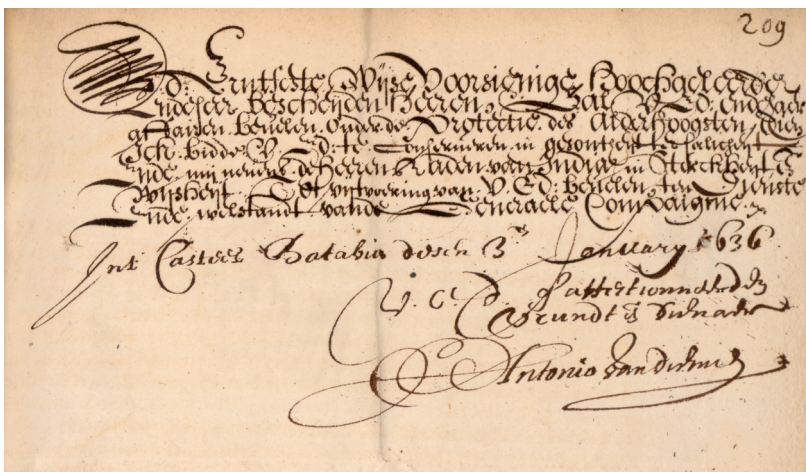 209
E.E: Erntfeste, Wijse, Voorsienige, Hoochgeleerde,
Ende seer bescheijden Heeren, Sal V. Ed. ende haer
affairen bevelen onder de Protectie des Alderhoogsten, Dien
Ick bidde V. Ed: te Conserveren in gesontheyt ter salicheyt
Ende mij nevens de heeren Raden van India in Sterckheyt &
Wijsheyt, Tot uytvoeringe van V. Ed: bevelen ten Dienste
Ende welstandt vande Generaele Compaignie.
Int Casteel Batavia desen 3en January 1636
V. E. geaffectionneerden
Vrundt & Dienaer
Antonio van diemen